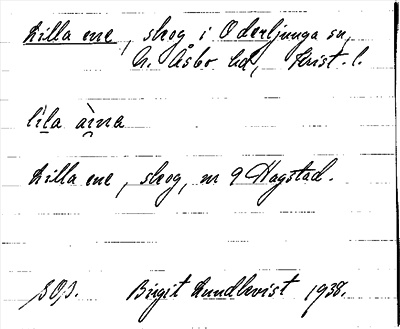 Lilla ene, skog i Oderljunga sn,
N. Åsbo hd, Krist. l.
lila äina
Lilla ene, skog, nr 9 Hagstad.
SOJ. Birgit Lundkvist 1938.